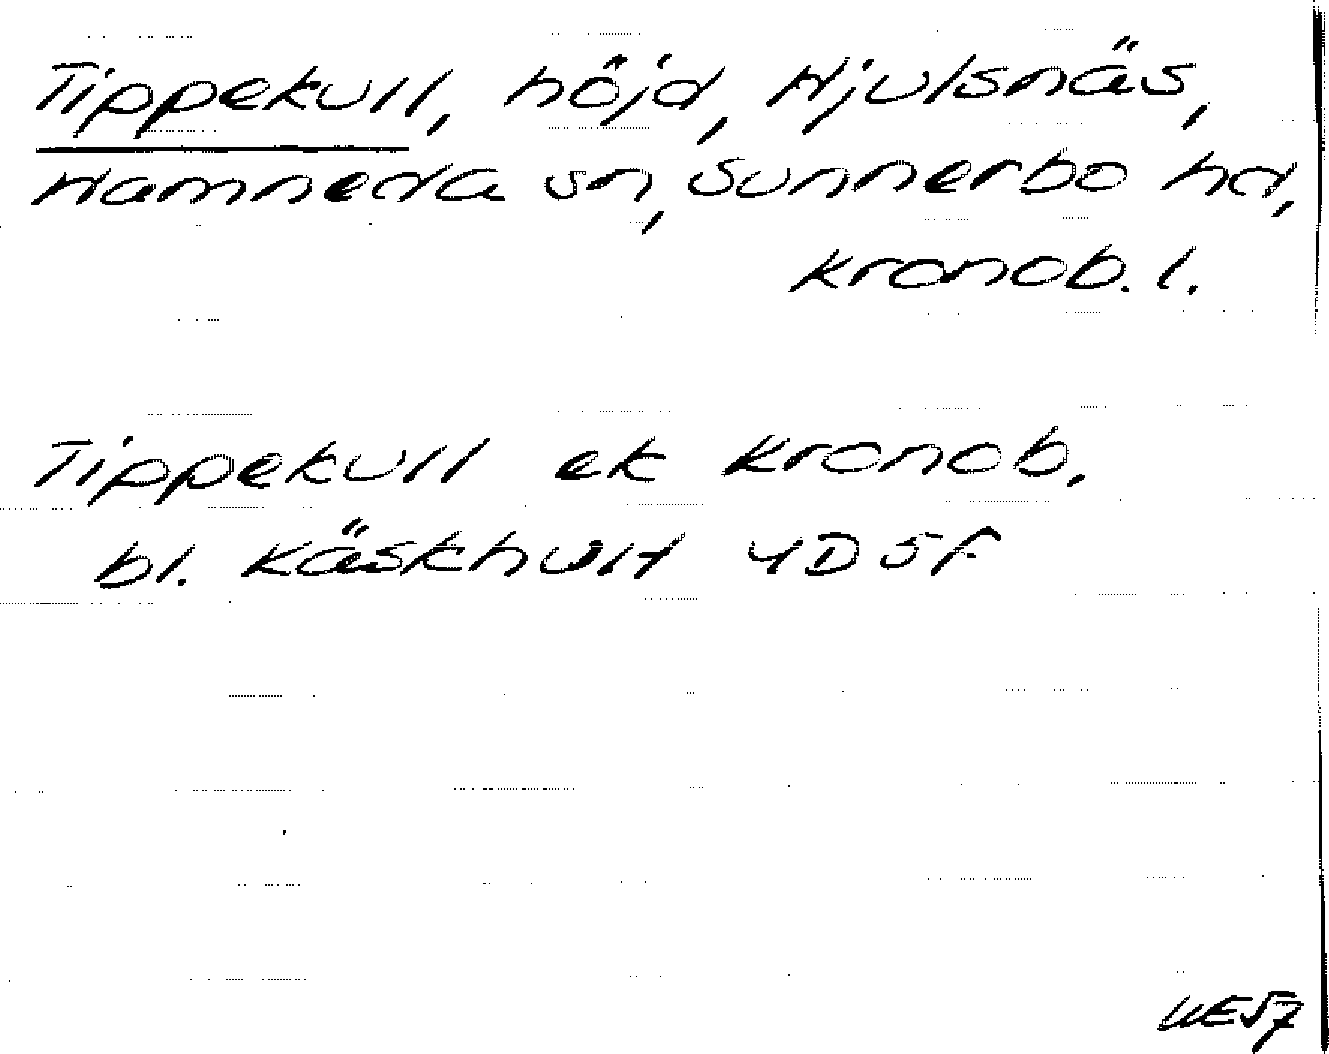 Tippekull, höjd, Hjulsnäs,
Hamneda sn, Sunnerbo hd,
Kronob. l.
Tippekull ek Kronob.
bl. Käskhult 4D5f
UE57